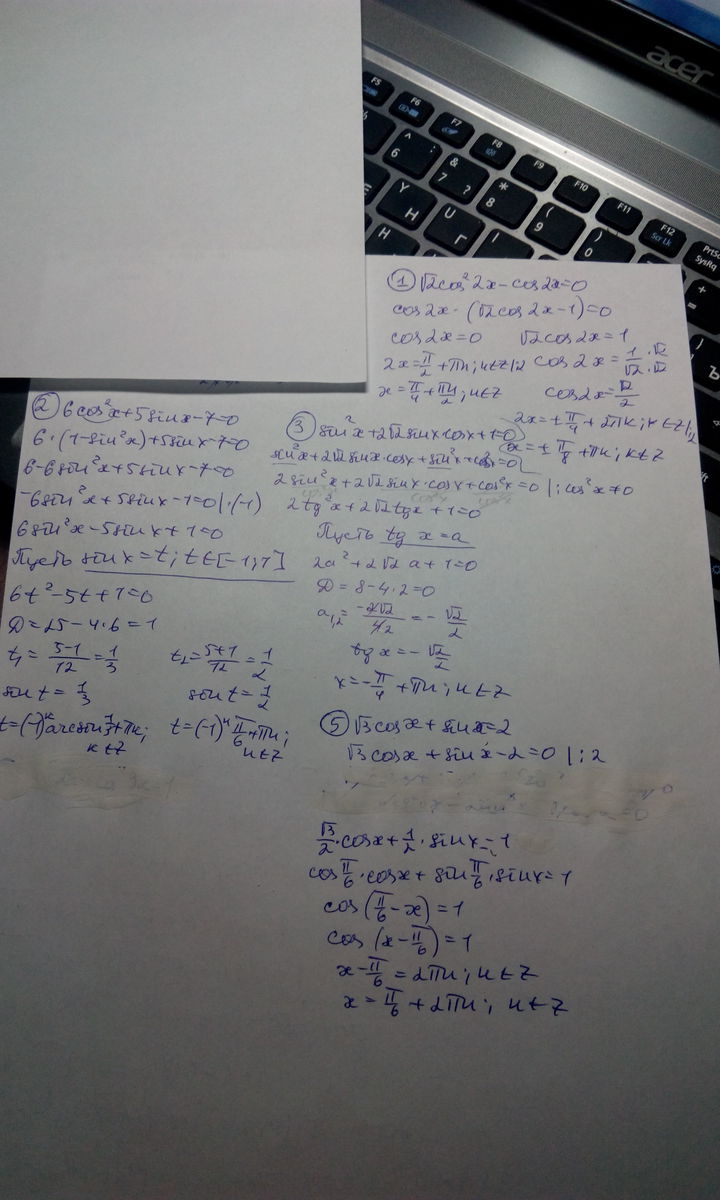 acer
F5
F6
F7
F8
F9
F10
F11
F12
Scr Lk
PrtSc
SysRq
^ 6 :
& 7 ?
* 8
( 9
) 0
E
Y Н
U Г
I
Н
Ъ
① √2cos²2x-cos2x=0
cos2x·(√2cos2x-1)=0
cos2x=0 √2cos2x=1
2x=π/2+πn; n∈Z |:2 cos2x=1·√2/√2·√2
x=π/4+πn/2; n∈Z cos2x=√2/2
2x=±π/4+2πk; k∈Z |:2
x=±π/8+πk; k∈Z
② 6cos²x+5sinx-7=0
6·(1-sin²x)+5sinx-7=0
6-6sin²x+5sinx-7=0
-6sin²x+5sinx-1=0 |·(-1)
6sin²x-5sinx+1=0
Пусть sinx=t; t∈[-1;1]
6t²-5t+1=0
D=25-4·6=1
t₁=5-1/12=1/3 t₂=5+1/12=1/2
sin t=1/3 sin t=1/2
t=(-1)ᵏarcsin1/3+πk; k∈Z t=(-1)ⁿπ/6+πn; n∈Z
③ sin²x+2√2sinx·cosx+1=0
sin²x+2√2sinx·cosx+sin²x+cos²x=0
2sin²x+2√2sinx·cosx+cos²x=0 |:cos²x≠0
2tg²x+2√2tgx+1=0
Пусть tg x=a
2a²+2√2a+1=0
D=8-4·2=0
a₁,₂=-2√2/4=-√2/2
tg x=-√2/2
x=-π/4+πn; n∈Z
⑤ √3cosx+sinx=2
√3cosx+sinx-2=0 |:2
√3/2·cosx+1/2·sinx=1
cosπ/6·cosx+sinπ/6·sinx=1
cos(π/6-x)=1
cos(x-π/6)=1
x-π/6=2πn; n∈Z
x=π/6+2πn; n∈Z